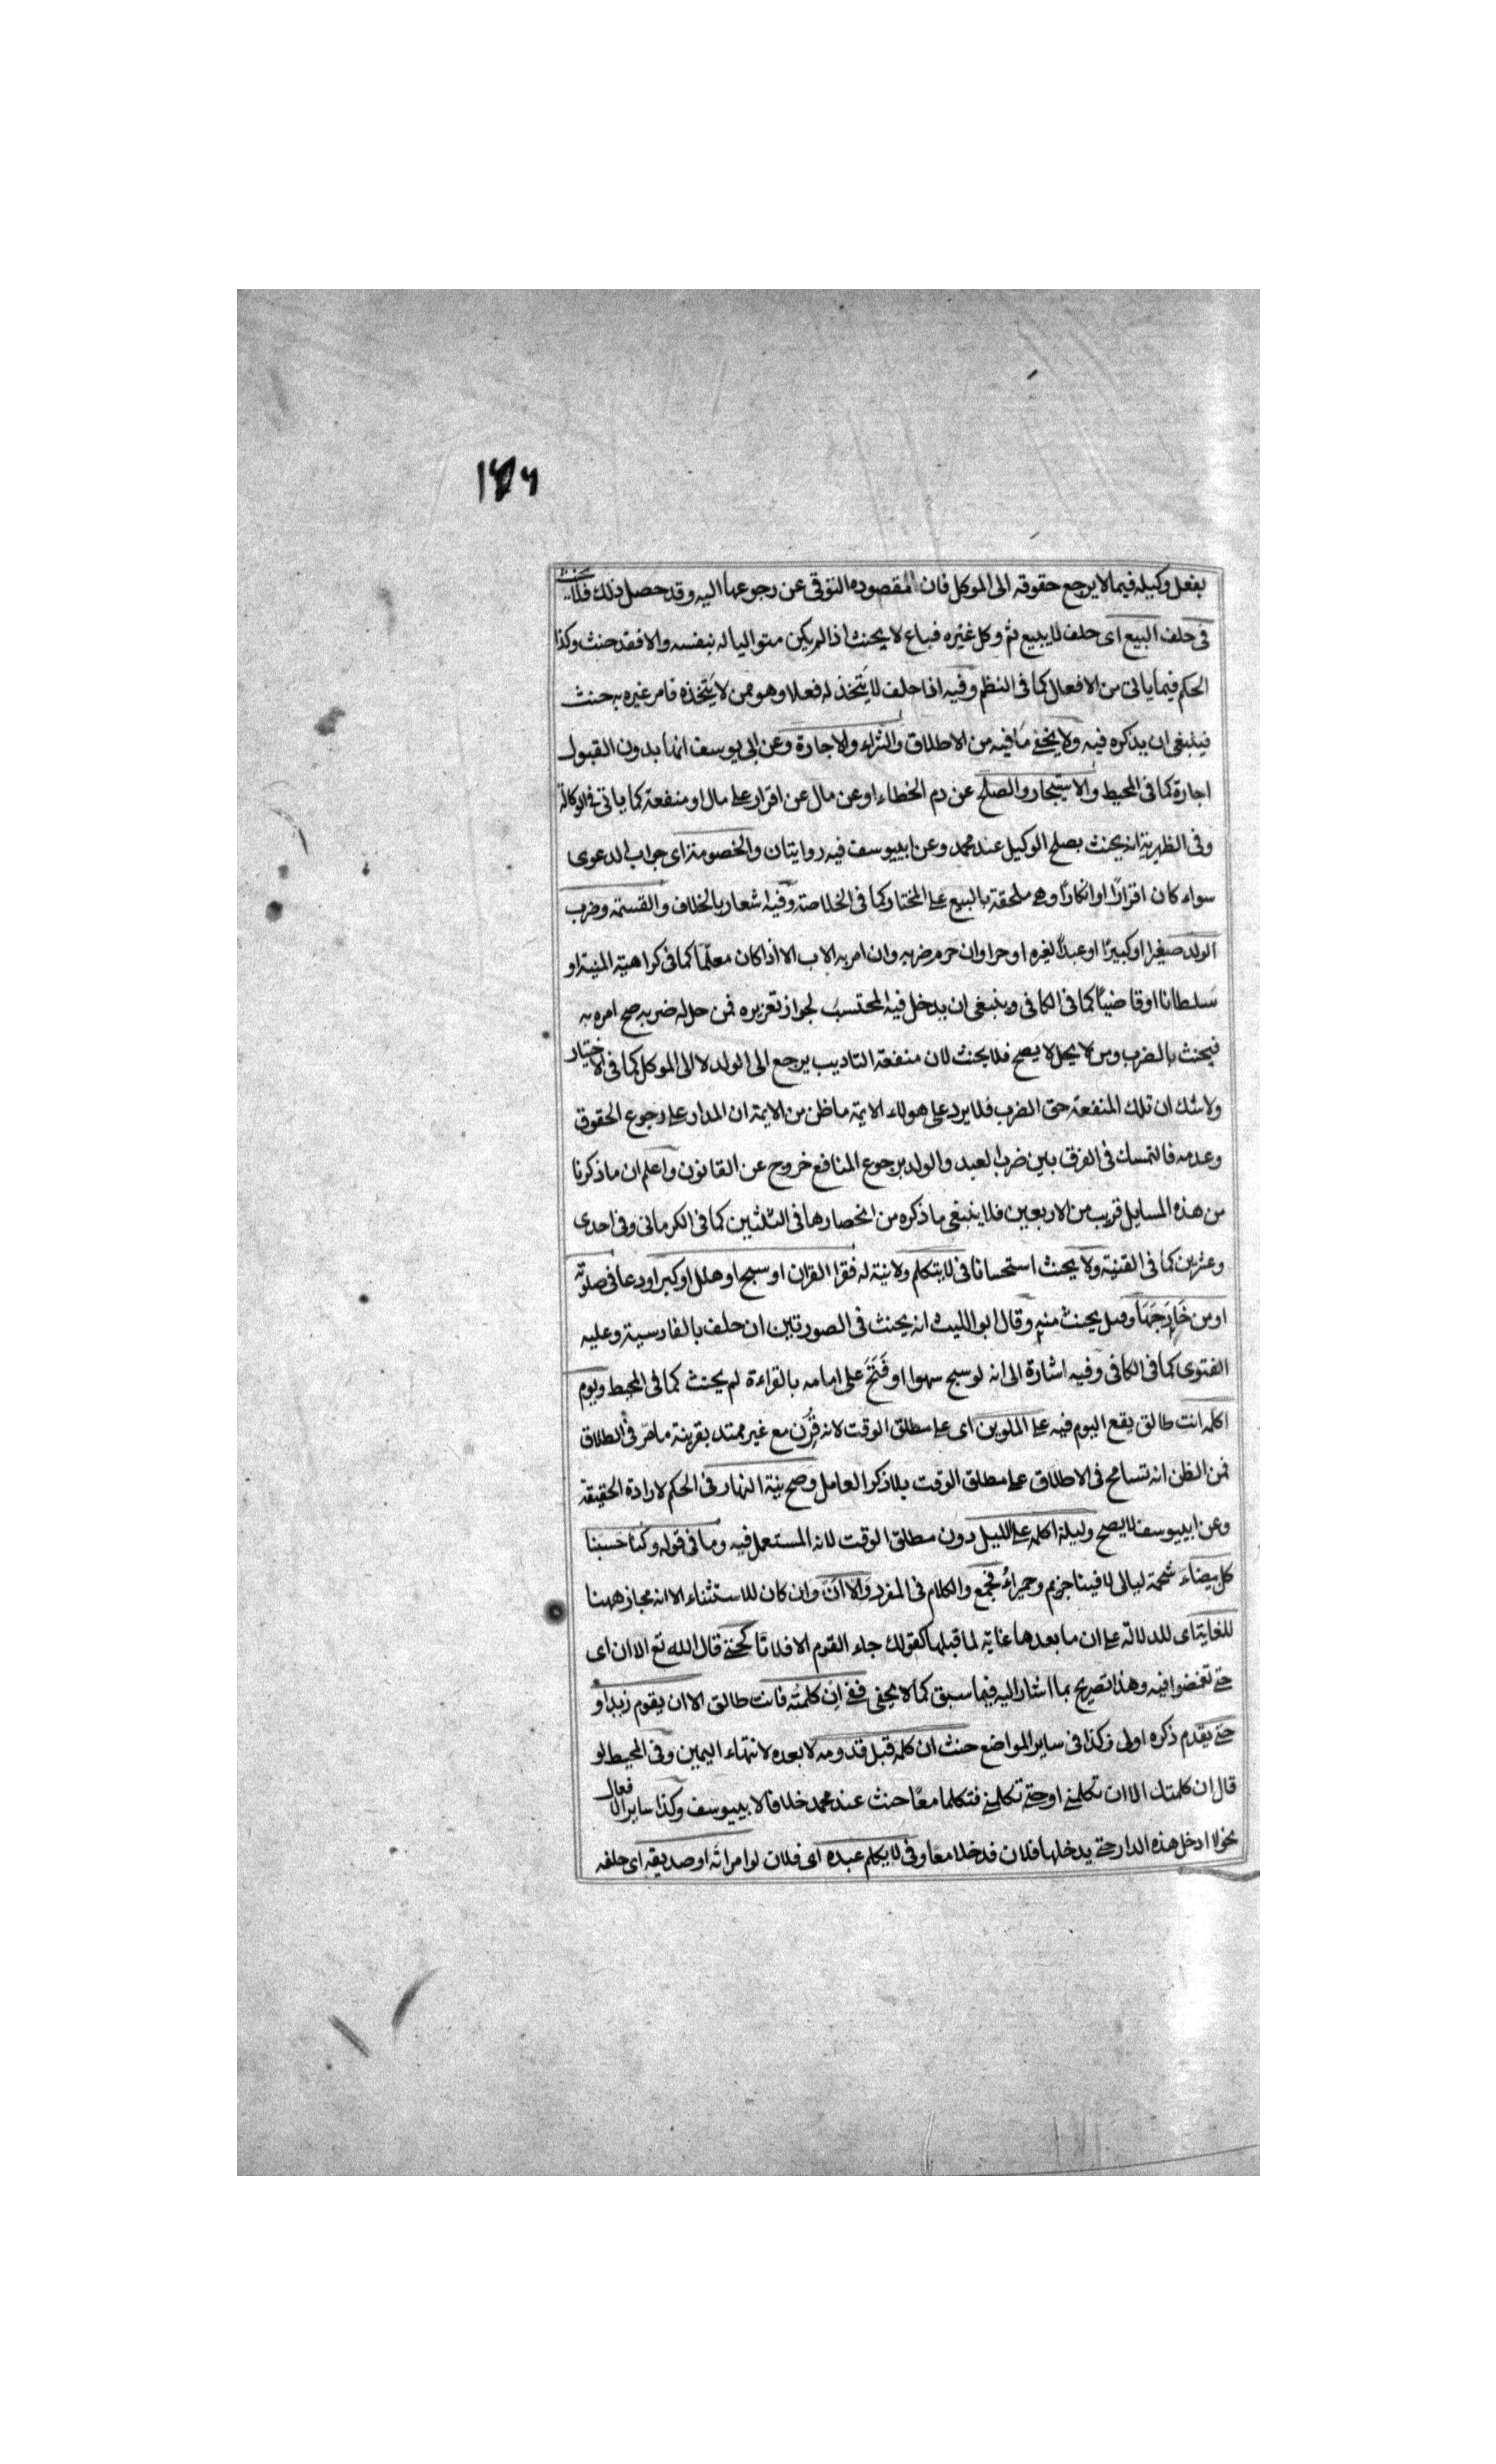 ١٤٦
بفعل وكيله فيما لا يرجع حقوقه الى الموكل فان المقصوده التوقى عن رجوعها اليه وقد حصل ذلك فلا يحنث
فى حلف البيع اى حلف لا يبيع ثم وكل غيره فباع لا يحنث اذا لم يكن متواليا له بنفسه والا فقد حنث وكذا
الحكم فيما ياتى من الافعال كما فى النظم وفيه اذا حلف لا يتخذ له فعلا وهو ممن لا يتخذه فامر غيره به حنث
فينبغى ان يذكره فيه ولا يخفى ما فيه من الاطلاق والشراء والاجارة وعن ابى يوسف انها بدون القبول
اجارة كما فى المحيط والاستيجار والصلح عن دم الخطاء او عن مال عن اقرار على مال او منفعة كما ياتى فى الوكالة
وفى الظهيرية انه يحنث بصلح الوكيل عند محمد وعن ابييوسف فيه روايتان والخصومة اى جواب الدعوى
سواء كان اقرارًا او انكارًا وهى ملحقة بالبيع على المختار كما فى الخلاصة وفيه اشعار بالخلاف والقسمة وضرب
الولد صغيرا او كبيرًا او عبدًا لغيره او حرا وان حرم ضربه وان امر به الاب الا اذا كان معلمًا كما فى كراهية المنية او
سلطانا او قاضيًا كما فى الكافى وينبغى ان يدخل فيه المحتسب لجواز تعزيره فمن حل له ضربه صح امره به
فيحنث بالضرب ومن لا يحل لا يصح فلا يحنث لان منفعة التاديب يرجع الى الولد لا الى الموكل كما فى الاختيار
ولا شك ان تلك المنفعة حق الضرب فلا يرد على هولاء الايمة ما ظن من الايمة ان المدار على رجوع الحقوق
وعدمه فالتمسك فى الفرق بين ضرب العبد والولد برجوع المنافع خروج عن القانون واعلم ان ما ذكرنا
من هذه المسايل قريب من الاربعين فلا ينبغى ما ذكره من انحصارها فى الثلثين كما فى الكرمانى وفى احدى
وعشرين كما فى القنية ولا يحنث استحسانا فى لا يتكلم ولا نية له فقرا القران او سبح او هلل او كبر او دعا فى صلوته
او من خارجها وقيل يحنث منه وقال ابو الليث انه يحنث فى الصورتين ان حلف بالفارسية وعليه
الفتوى كما فى الكافى وفيه اشارة الى انه لو سبح سهوا او فتح على امامه بالقراءة لم يحنث كما فى المحيط ويوم
اكلمه انت طالق يقع اليوم فيه على الملوين اى على مطلق الوقت لانه قرن مع غير ممتد بقرينة ما مر فى الطلاق
فمن الظن انه تسامح فى الاطلاق على مطلق الوقت بلا ذكر العامل وصح نية النهار فى الحكم لارادة الحقيقة
وعن ابييوسف لا يصح وليلة اكلمه على الليل دون مطلق الوقت لانه المستعمل فيه وما فى قوله وكنا حسبنا
كل بيضاء شحمة ليالى لاقينا جزيم وحميراء فجمع والكلام فى المفرد والا ان وان كان للاستثناء الا انه مجاز ههنا
للغاية اى للدلالة على ان ما بعدها غاية لما قبلها كقولك جاء القوم الا فلانا كحتى قال الله تع الا ان اى
حتى تغمضوا فيه وهذا تصريح بما اشار اليه فيما سبق كما لا يخفى ففى ان كلمته فانت طالق الا ان يقوم زيد او
حتى يقدم ذكره اولى وكذا فى ساير المواضع حنث ان كلمه قبل قدومه لا بعده لانتهاء اليمين وفى المحيط لو
قال ان كلمتك الا ان تكلمنى او حتى تكلمنى فتكلما معًا حنث عند محمد خلافا لابييوسف وكذا ساير الافعال
نحو لا ادخل هذه الدار حتى يدخلها فلان فدخلا معًا وفى لا يكلم عبده اى فلان او امراته او صديقه اى حلفه